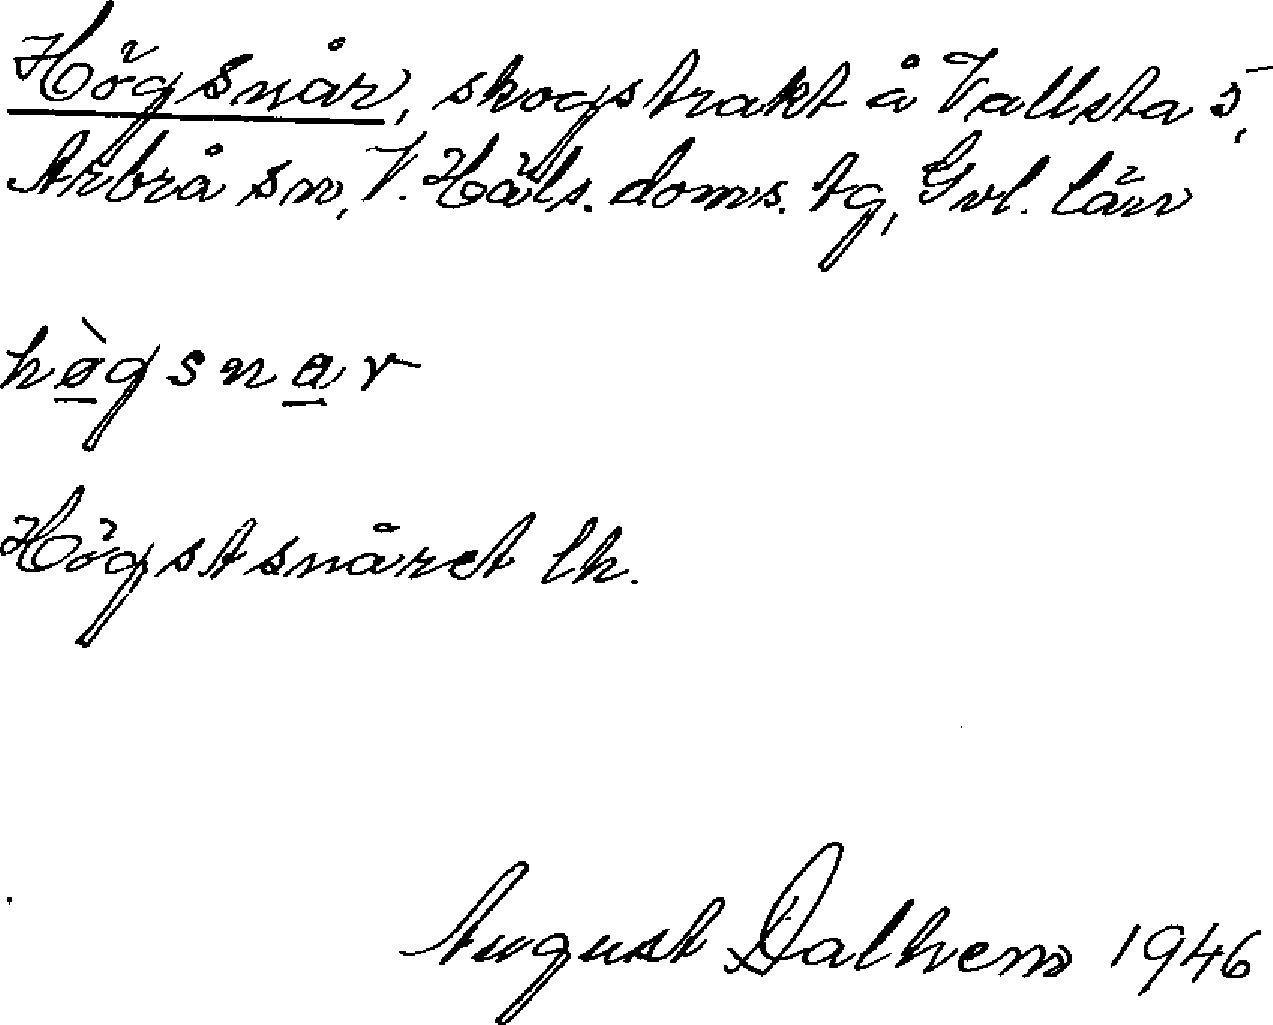 Högsnår, skogstrakt å Vallsta 5,
Arbrå sn, V. Häls. doms. tg, Gvl. län
hø̀gsnar
Högstsnåret lk.
August Dalhem 1946